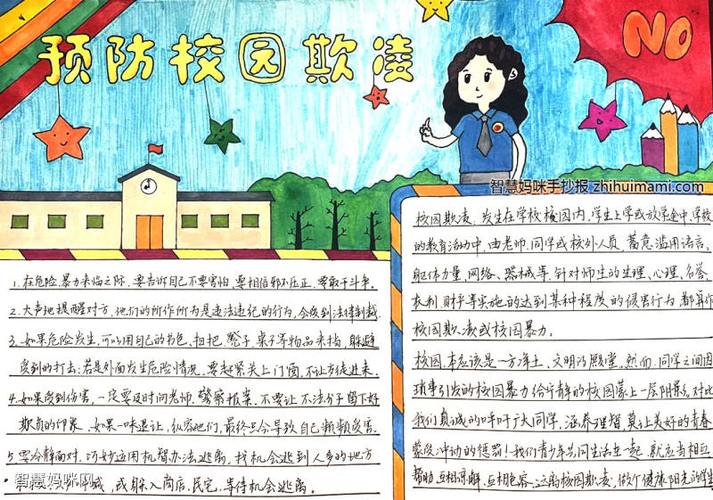 预防校园欺凌
NO
智慧妈咪手抄报 zhihuimami.com
1.在危险暴力来临之际，要告诉自己不要害怕，要相信邪不压正，要敢于斗争。
2.大声地提醒对方，他们的所作所为是违法违纪的行为，会受到法律制裁
3.如果危险发生，可以用自己的书包、扫把、凳子、桌子等物品来挡，躲避
受到的打击；若是外面发生危险情况，要赶紧关上门窗，不让歹徒进来。
4.如果受到伤害，一定要及时向老师、警察报案，不要让不法分子留下好
欺负的印象，如果一味退让，纵容他们，最终只会导致自己频频受害。
5.要冷静面对，巧妙运用机智办法逃离，找机会逃到人多的地方
或躲入商店、民宅，等待机会逃离。
智慧妈咪网
校园欺凌，发生在学校校园内、学生上学或放学途中、学校
的教育活动中，由老师、同学或校外人员，蓄意滥用语言、
躯体力量、网络、器械等，针对师生的生理、心理、名誉、
权利、财产等实施的达到某种程度的侵害行为，都算作
校园欺凌或校园暴力。
校园，本应该是一方净土、文明的殿堂，然而，同学之间因
琐事引发的校园暴力给宁静的校园蒙上一层阴影，对此
我们真诚的呼吁广大同学，涵养理智，莫让美好的青春
蒙受冲动的惩罚！我们青少年共同生活在一起，就应当相互
帮助、互相谅解、互相包容，远离校园欺凌，做个健康阳光的学生